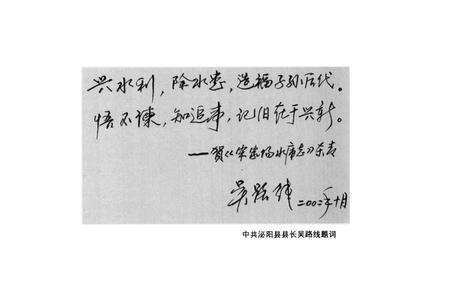 兴水利，除水患，造福子孙后代。
悟不谏，知追事，记旧在于兴新。
——贺《宋家场水库志》杰青
吴 二〇〇二年十月
中共泌阳县县长吴路线题词